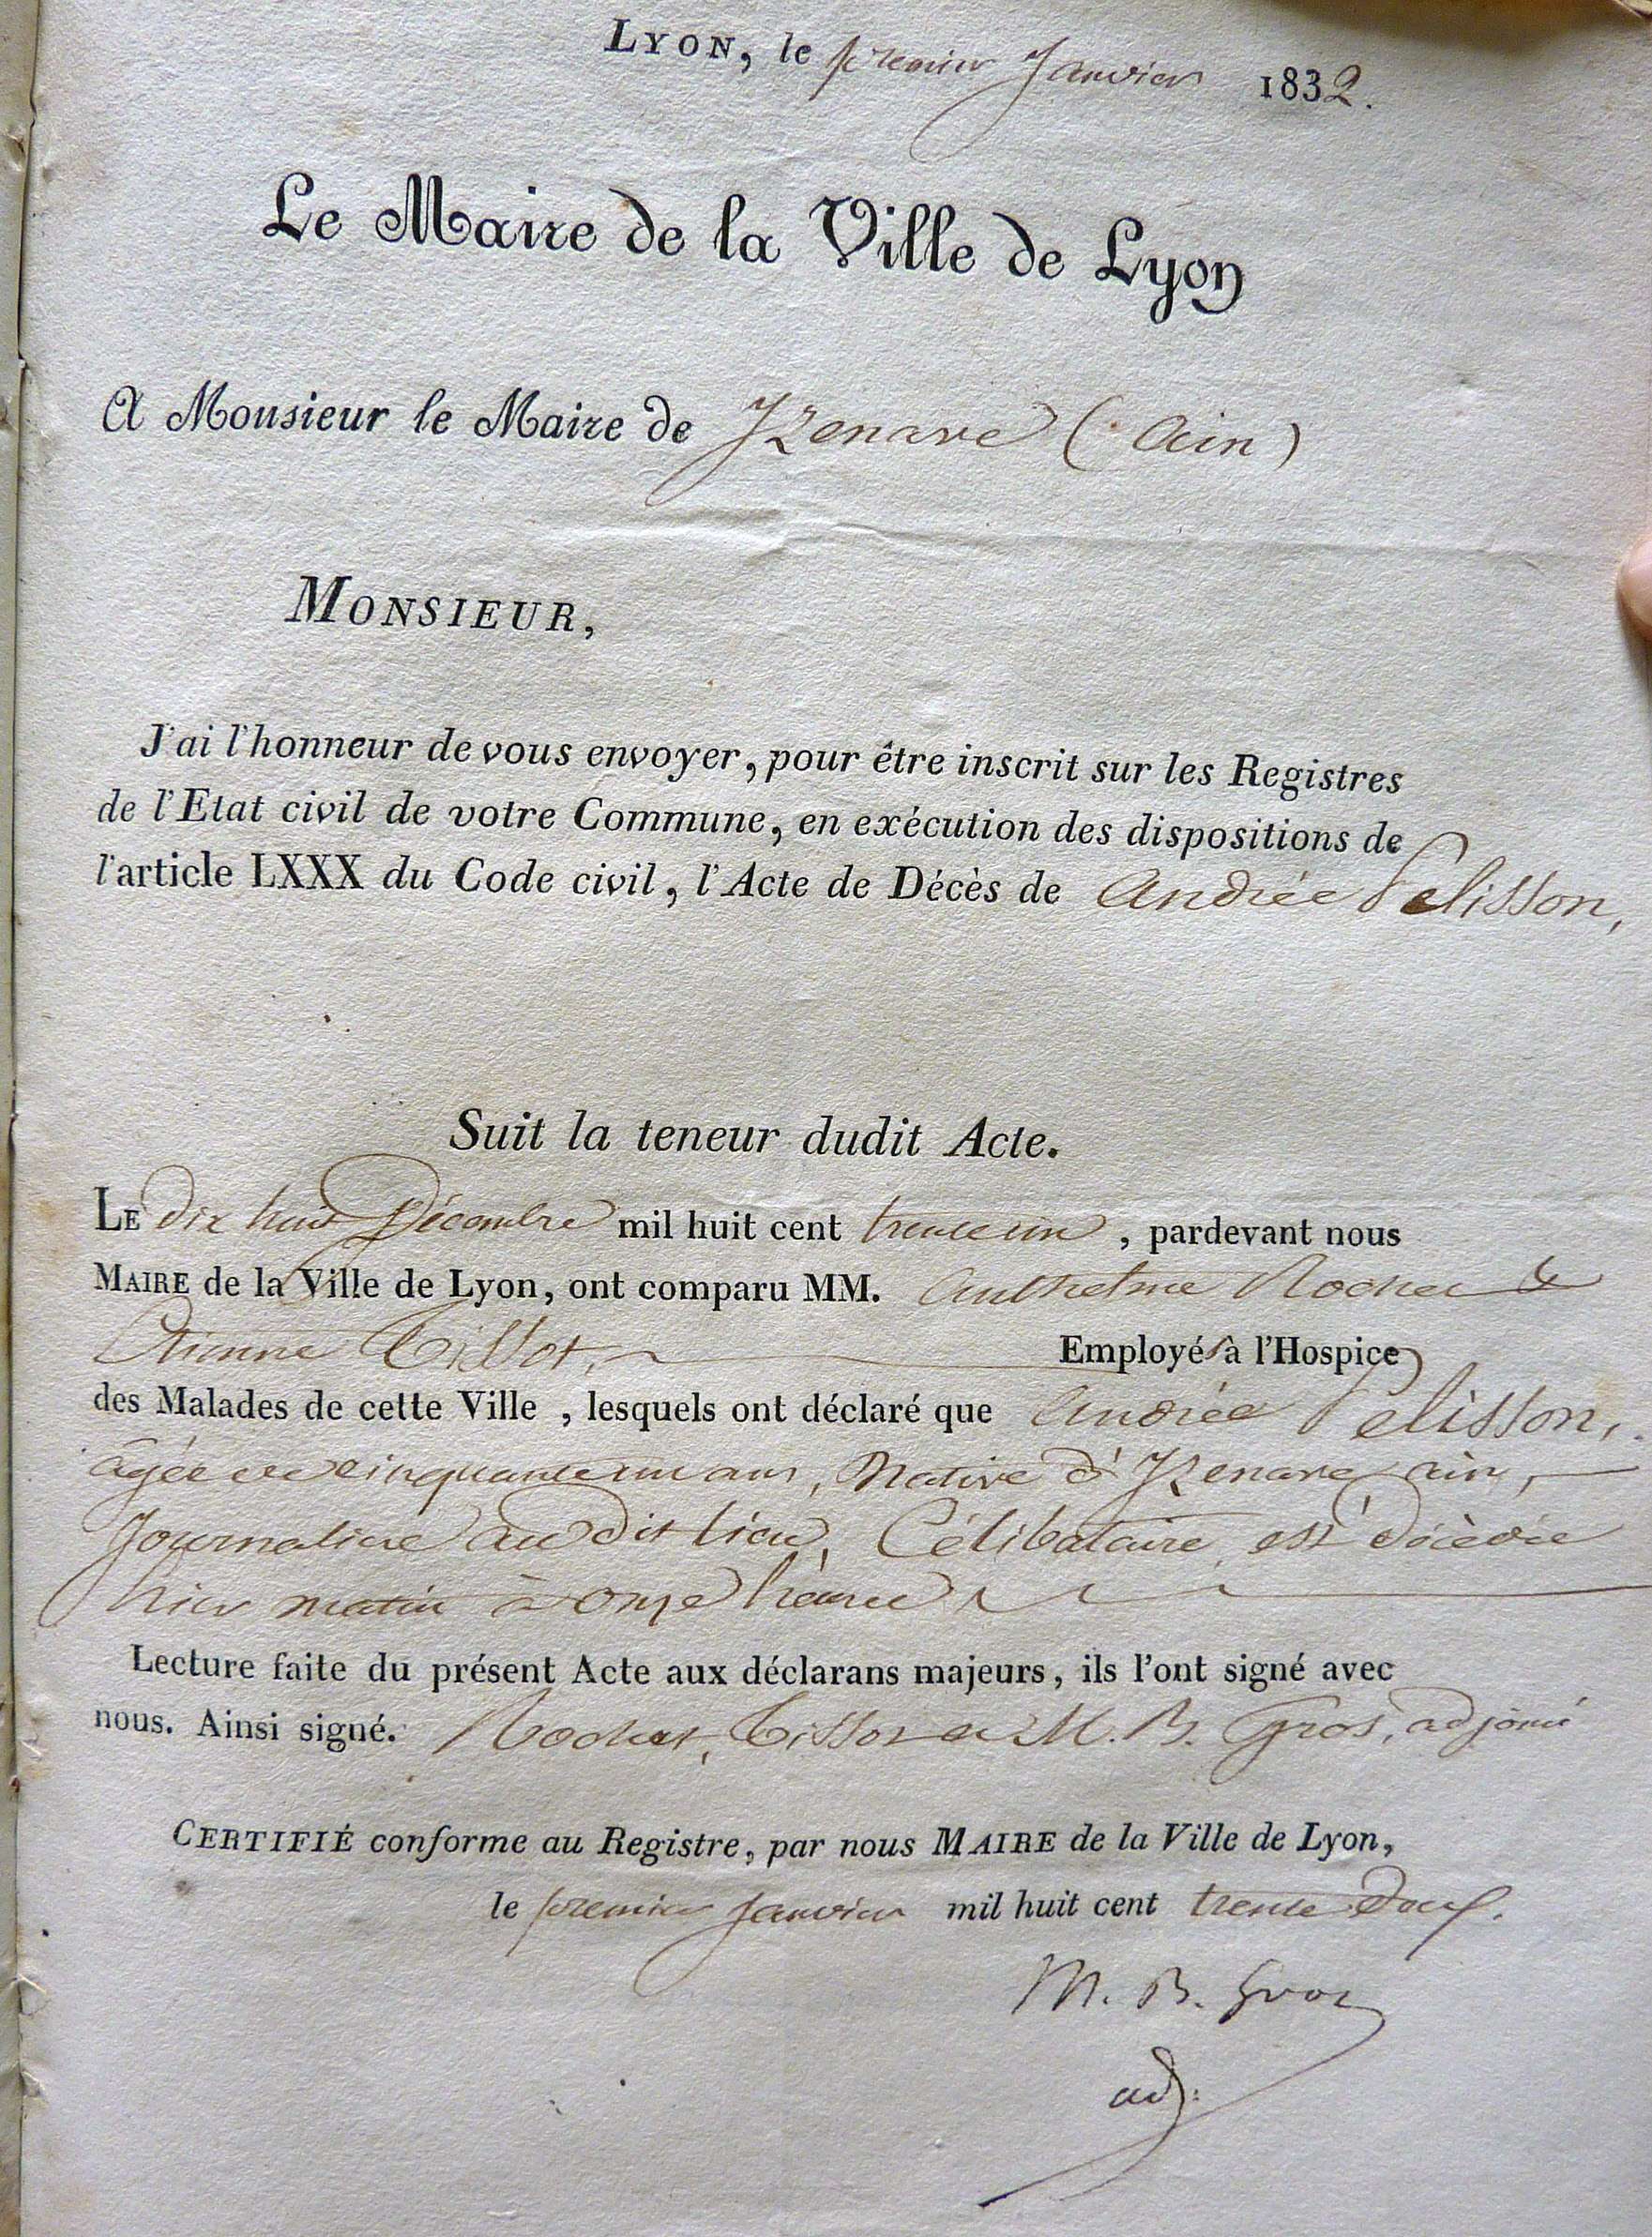 LYON, le premier Janvier 1832.
Le Maire de la Ville de Lyon
A Monsieur le Maire de Izenave (Ain)
MONSIEUR,
J'ai l'honneur de vous envoyer, pour être inscrit sur les Registres
de l'Etat civil de votre Commune, en exécution des dispositions de
l'article LXXX du Code civil, l'Acte de Décès de Andrée Pelisson,
Suit la teneur dudit Acte.
LE dix huit Décembre mil huit cent trente un, pardevant nous
MAIRE de la Ville de Lyon, ont comparu MM. Anthelme Rochet &
Etienne Tissot, Employés à l'Hospice
des Malades de cette Ville, lesquels ont déclaré que Andrée Pelisson,
âgée de cinquante un ans, Native d'Izenave, ain,
Journalière audit lieu, Célibataire, est décédée
hier matin à onze heures
Lecture faite du présent Acte aux déclarans majeurs, ils l'ont signé avec
nous. Ainsi signé. Rochet, Tissot et M. B. Gros, adjoint
CERTIFIÉ conforme au Registre, par nous MAIRE de la Ville de Lyon,
le premier Janvier mil huit cent trente deux.
M. B. Gros
adj: